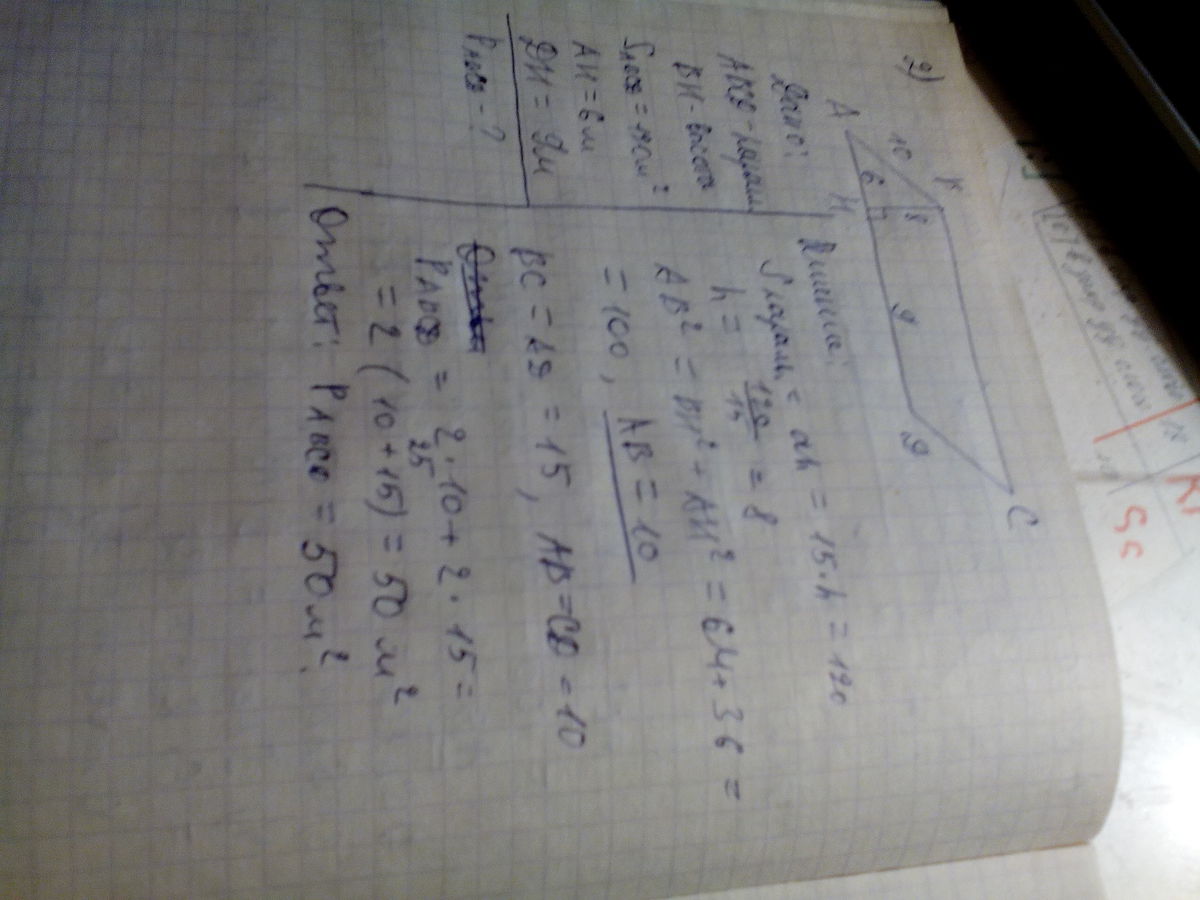 2)
A
B
C
D
H
10
6
8
9
Дано:
ABCD - парал.
BH - высота
SABCD = 120 м²
AH = 6 м
DH = 9 м
PABCD - ?
Решение:
Sпарал. = ah = 15·h = 120
h = 120/15 = 8
AB² = BH² + AH² = 64 + 36 =
= 100, AB = 10
BC = AD = 15, AB = CD = 10
PABCD = 2·10 + 2·15 =
25
= 2 (10+15) = 50 м²
Ответ: PABCD = 50 м².